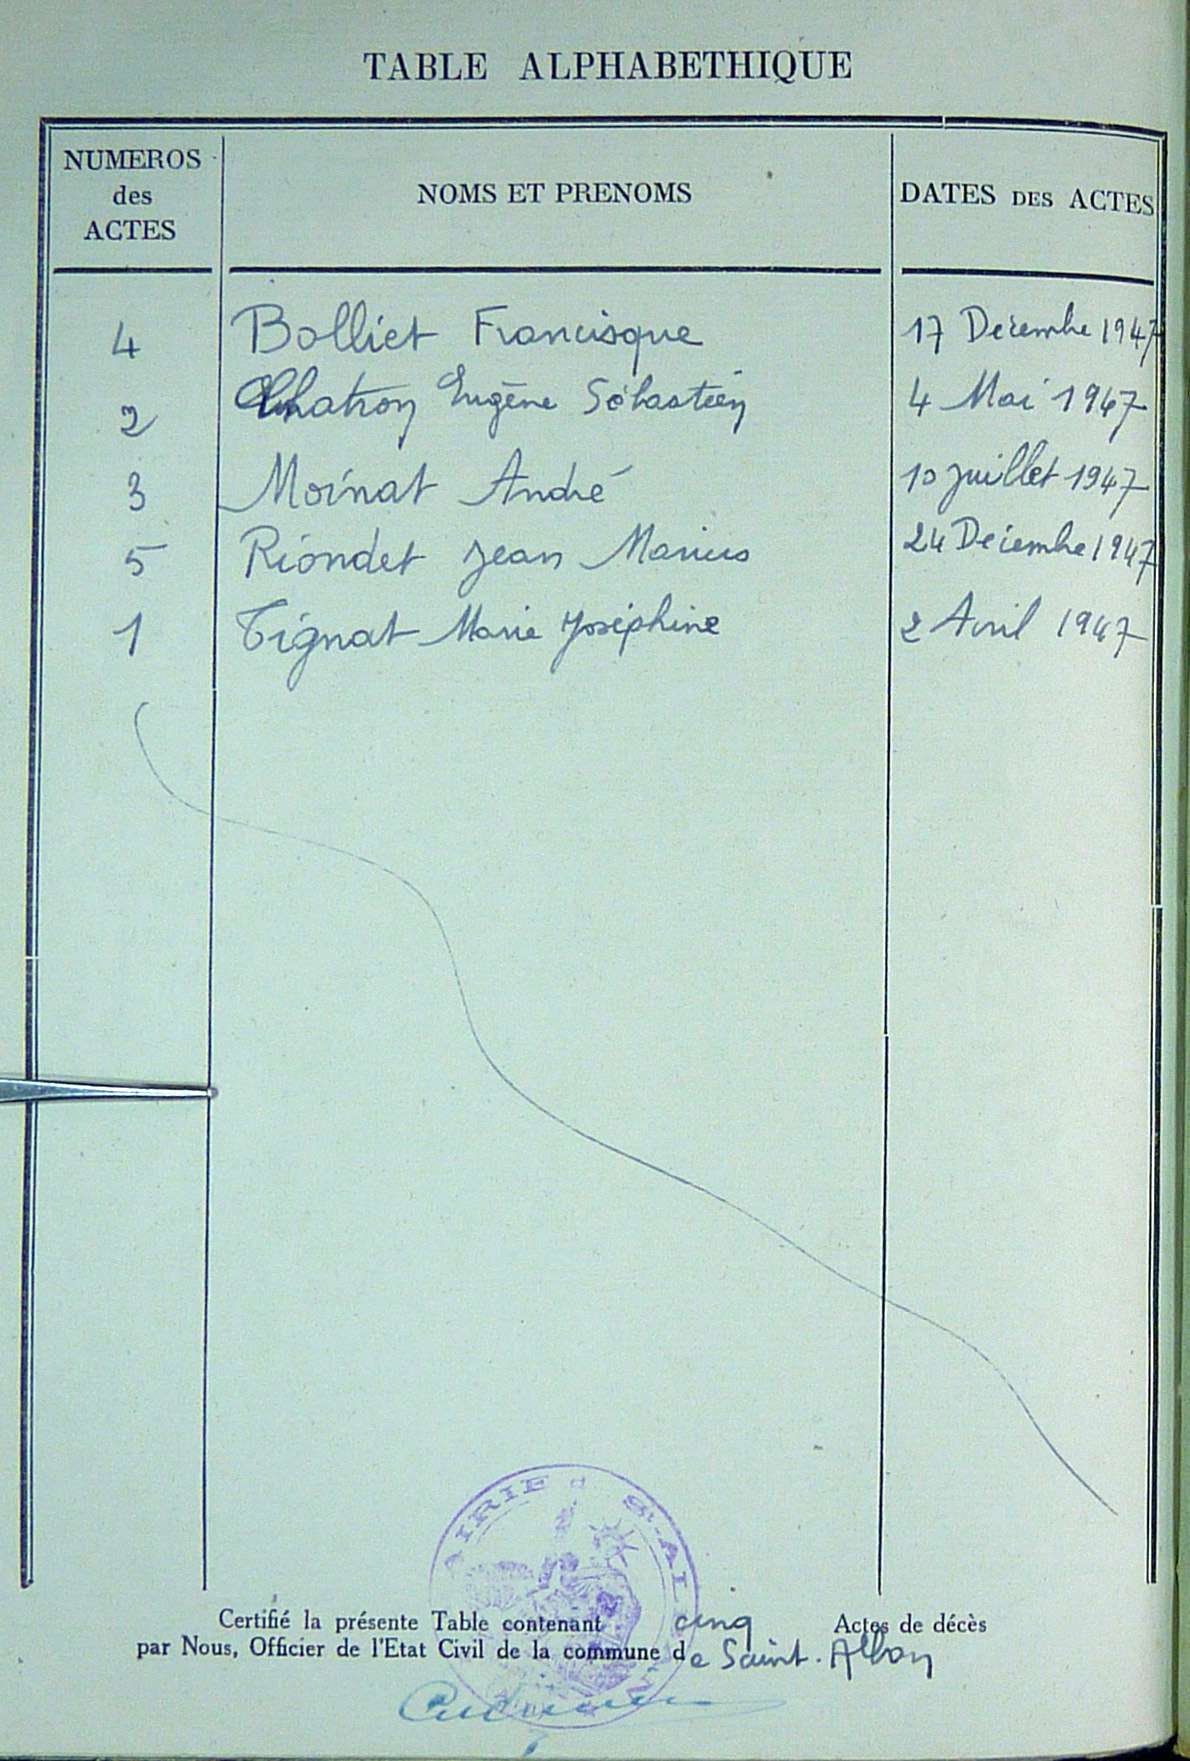 TABLE ALPHABETHIQUE
NUMEROS des ACTES NOMS ET PRENOMS DATES DES ACTES
4 Bolliet Francisque 17 Décembre 1947
2 Chatron Eugène Sébastien 4 Mai 1947
3 Moinat André 10 juillet 1947
5 Riondet Jean Marius 24 Décembre 1947
1 Tignat Marie Joséphine 2 Avril 1947
AIRIE d St-AL
Certifié la présente Table contenant cinq Actes de décès
par Nous, Officier de l'Etat Civil de la commune de Saint-Alban